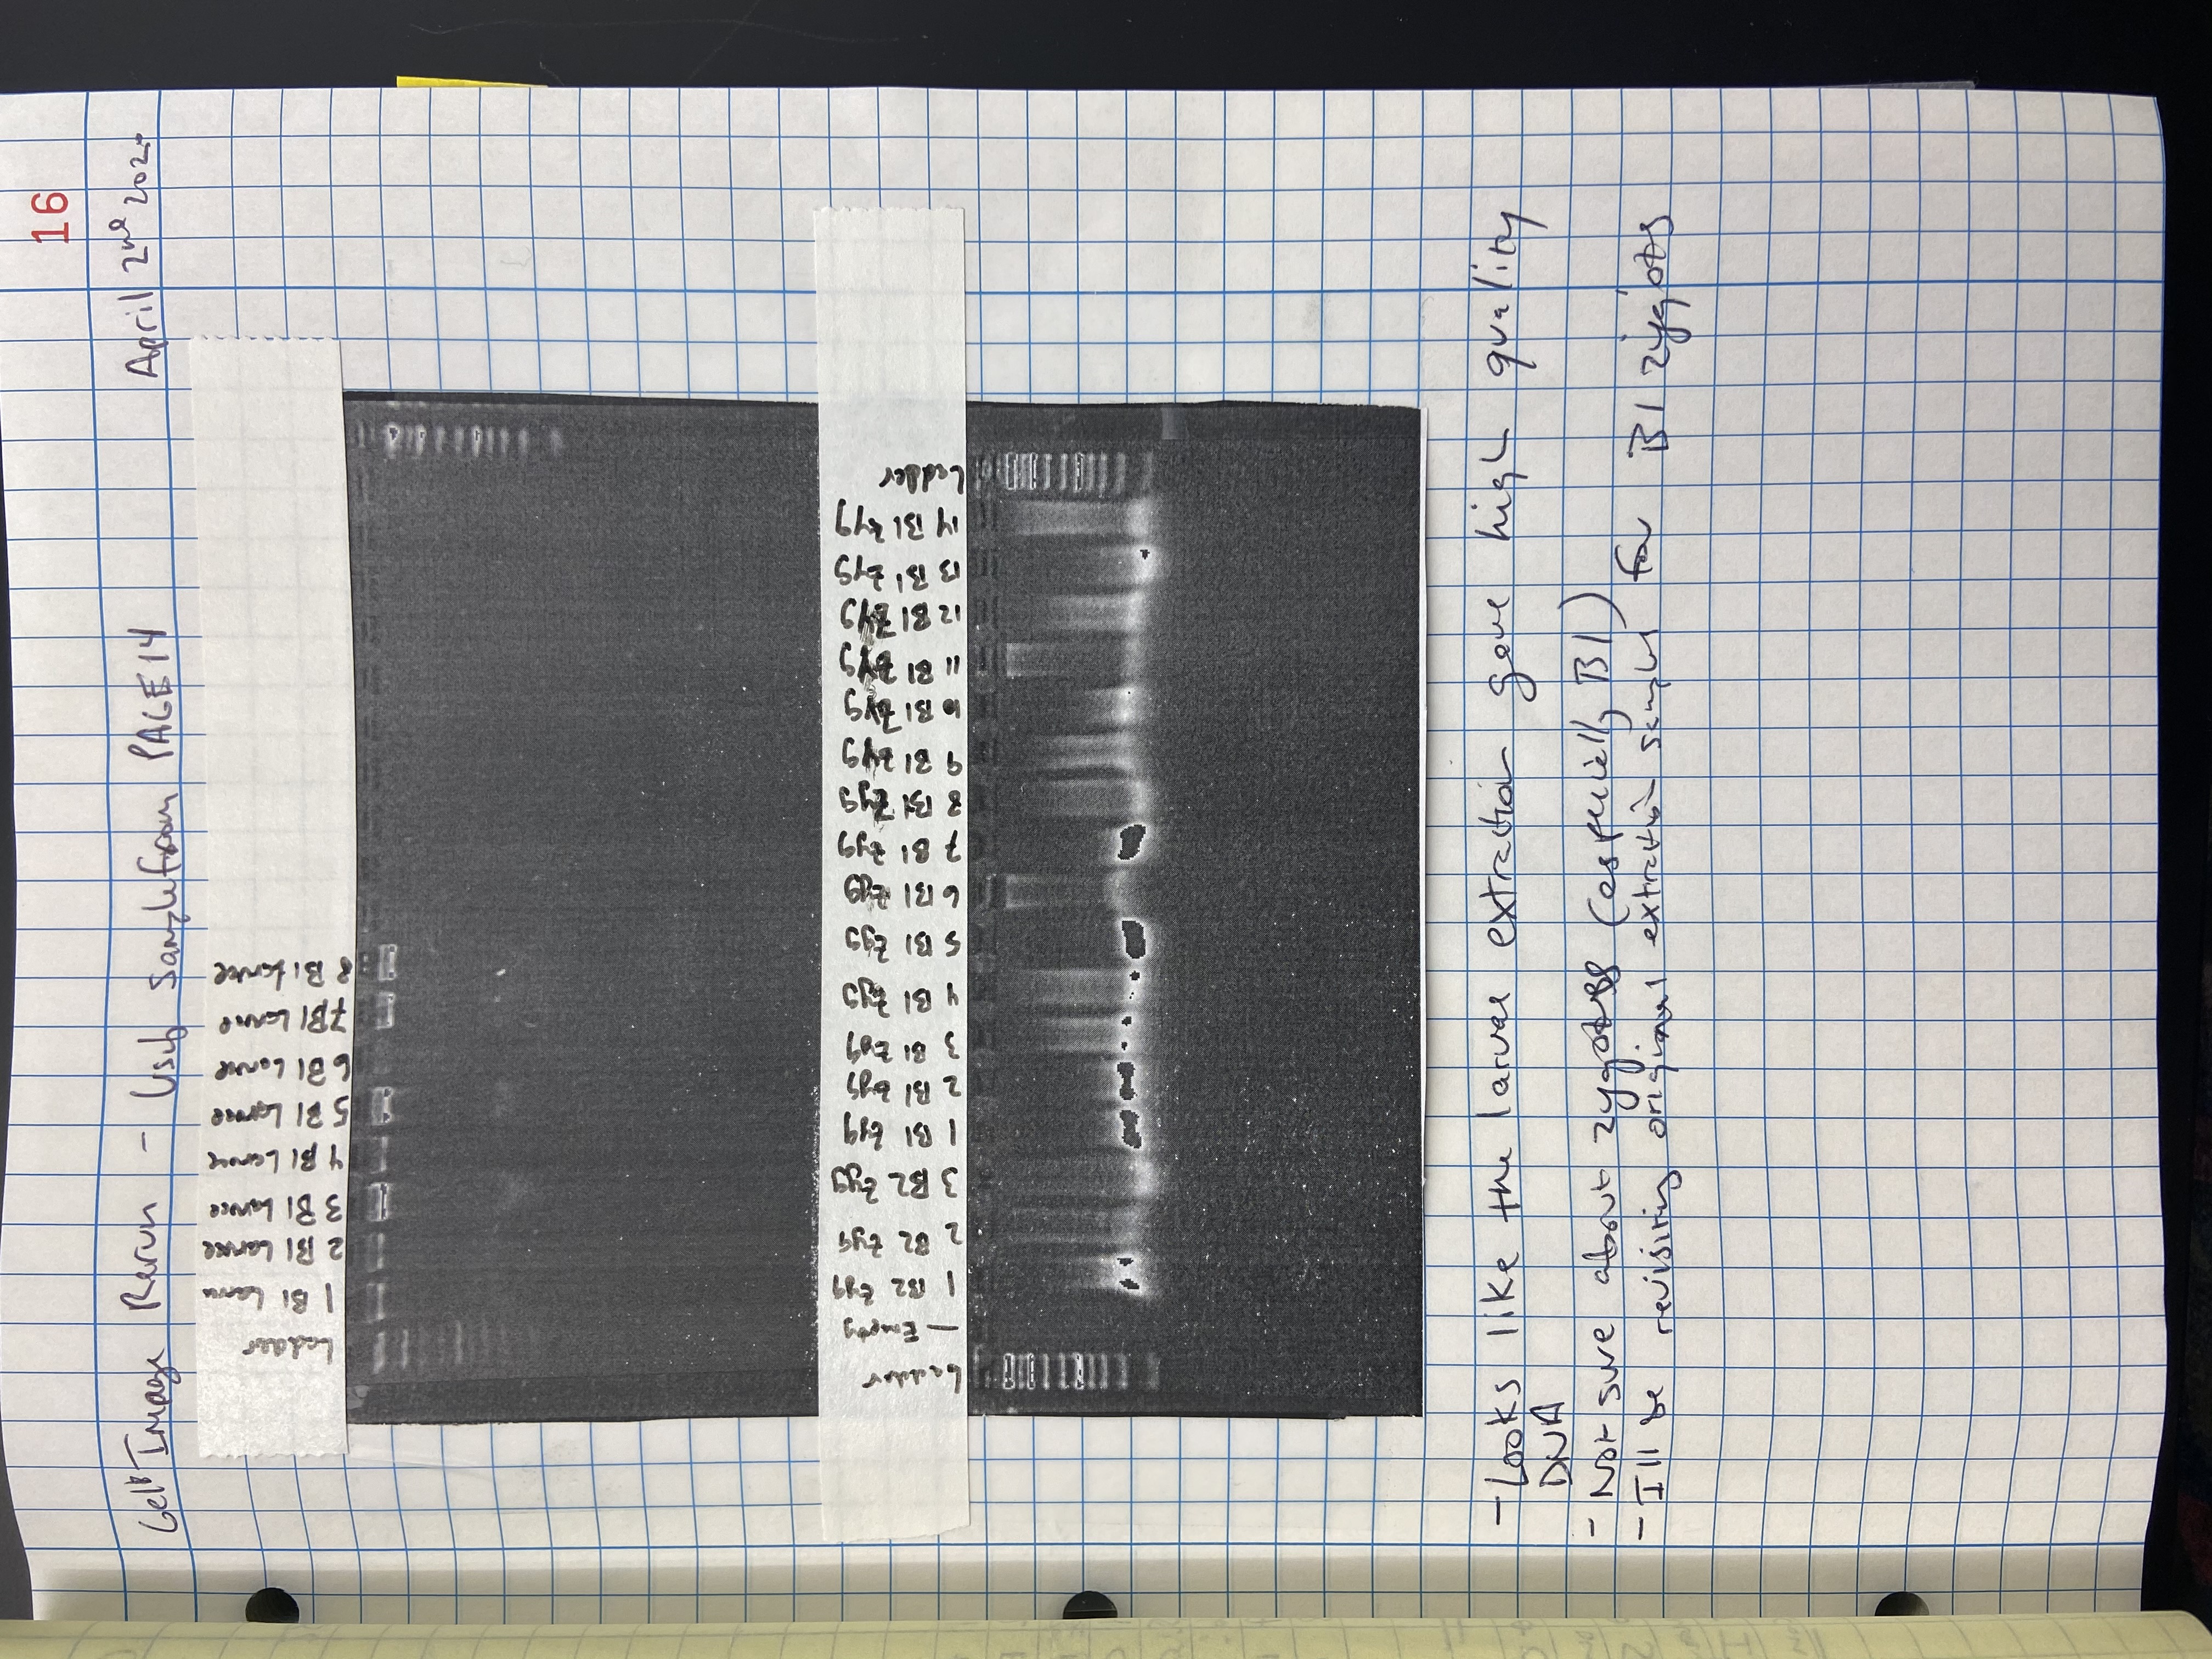 16
Gel Image Rerun - Using Sample from PAGE 14
April 2nd 2020
Ladder
1 B1 Larvae
2 B1 Larvae
3 B1 Larvae
4 B1 Larvae
5 B1 Larvae
6 B1 Larvae
7 B1 Larvae
8 B1 Larvae
Ladder
— Empty
1 B2 Zyg
2 B2 Zyg
3 B2 Zyg
1 B1 Zyg
2 B1 Zyg
3 B1 Zyg
4 B1 Zyg
5 B1 Zyg
6 B1 Zyg
7 B1 Zyg
8 B1 Zyg
9 B1 Zyg
10 B1 Zyg
11 B1 Zyg
12 B1 Zyg
13 B1 Zyg
14 B1 Zyg
Ladder
- Looks like the larvae extraction gave high quality
DNA
- Not sure about zygotes (especially B1)
- I'll be revisiting original extraction samples for B1 zygots